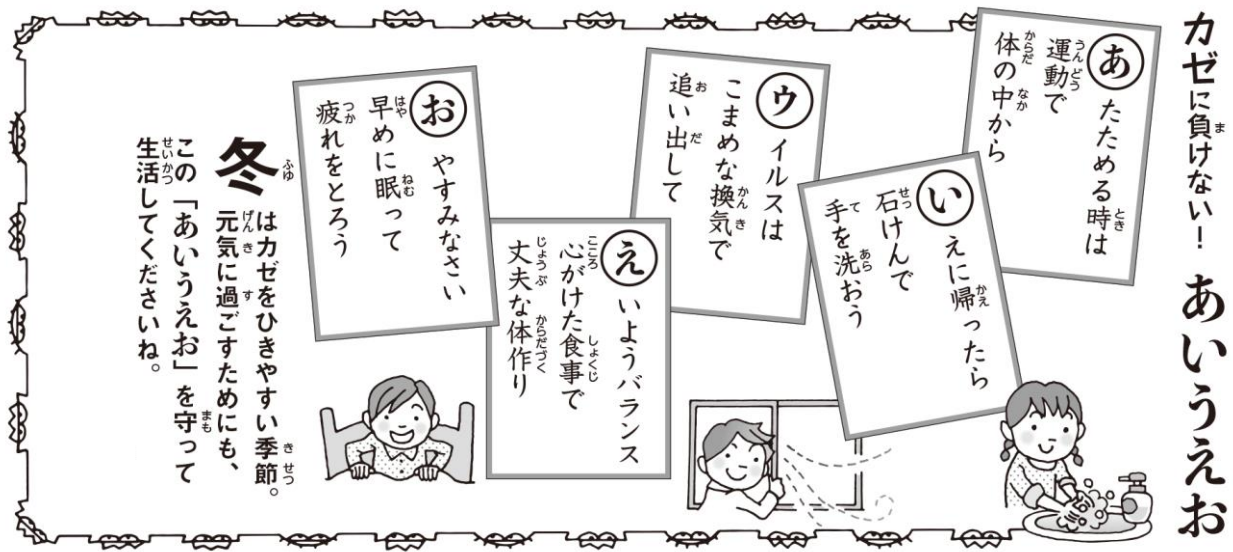 カゼに負けない！ あいうえお
あたためる時は
運動で
体の中から
いえに帰ったら
石けんで
手を洗おう
ウイルスは
こまめな換気で
追い出して
えいようバランス
心がけた食事で
丈夫な体作り
おやすみなさい
早めに眠って
疲れをとろう
冬はカゼをひきやすい季節。
元気に過ごすためにも、
この「あいうえお」を守って
生活してくださいね。